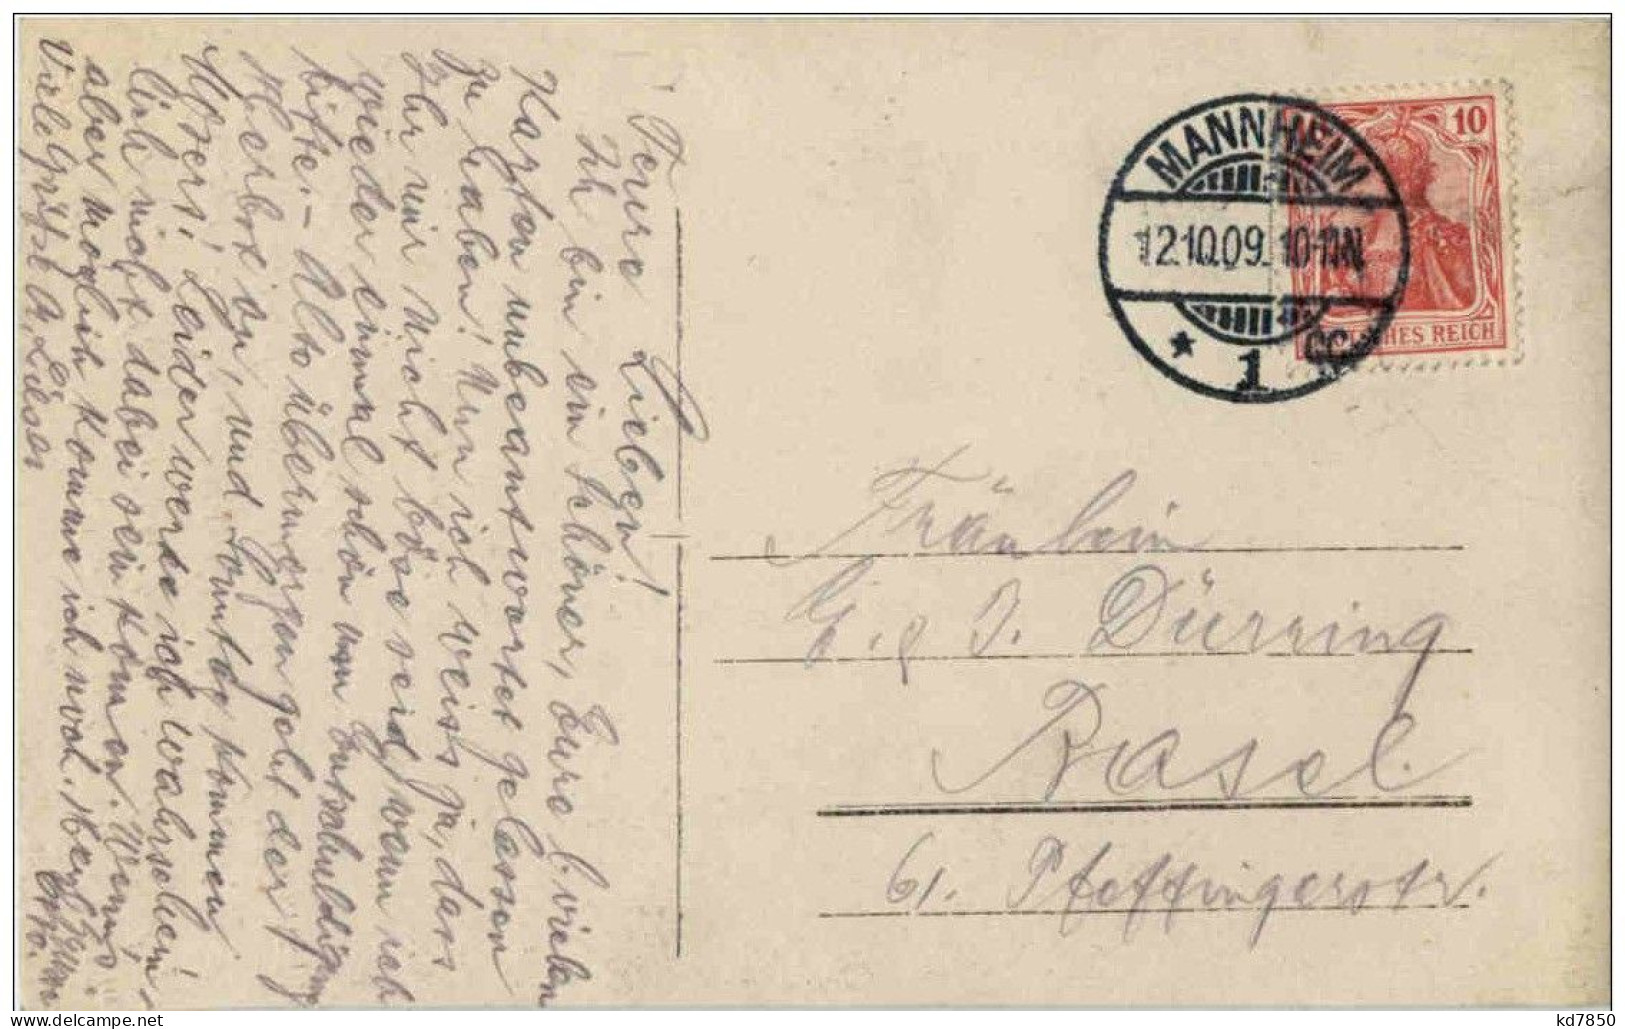 Teure Lieben!
Ich bin ein schöner, Eure l. vielen
Karten unbeantwortet gelassen
zu haben! Nun ich weiss ja, dass
Ihr mir nicht böse seid, wenn ich
wieder einmal schön um Entschuldigung
bitte. - Also übermorgen geht der
Herbst an, und Sonntag kommen
Leider werde ich wahrschein-
lich nicht dabei sein können. Wenn's
aber möglich komme ich noch. Herzl.
Viele Grüsse a. Lieser
MANNHEIM
12.10.09. 10-11 N
* 1 CC
10
DEUTSCHES REICH
Fräulein
G. & J. Dürring
Basel.
61. Pfeffingerstr.
kd7850